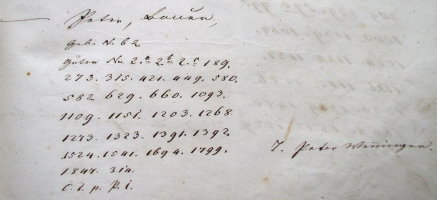 Peter, Bauer,
Geb. N. 62
Güter No. 2.a 2.b 2.c 189.
273. 315. 421. 449. 580.
582. 629. 660. 1093.
1109. 1151. 1203. 1268.
1273. 1323. 1391. 1392
1524. 1541. 1694. 1799.
1847. 314.
C. i. p. P. i.
7. Peter